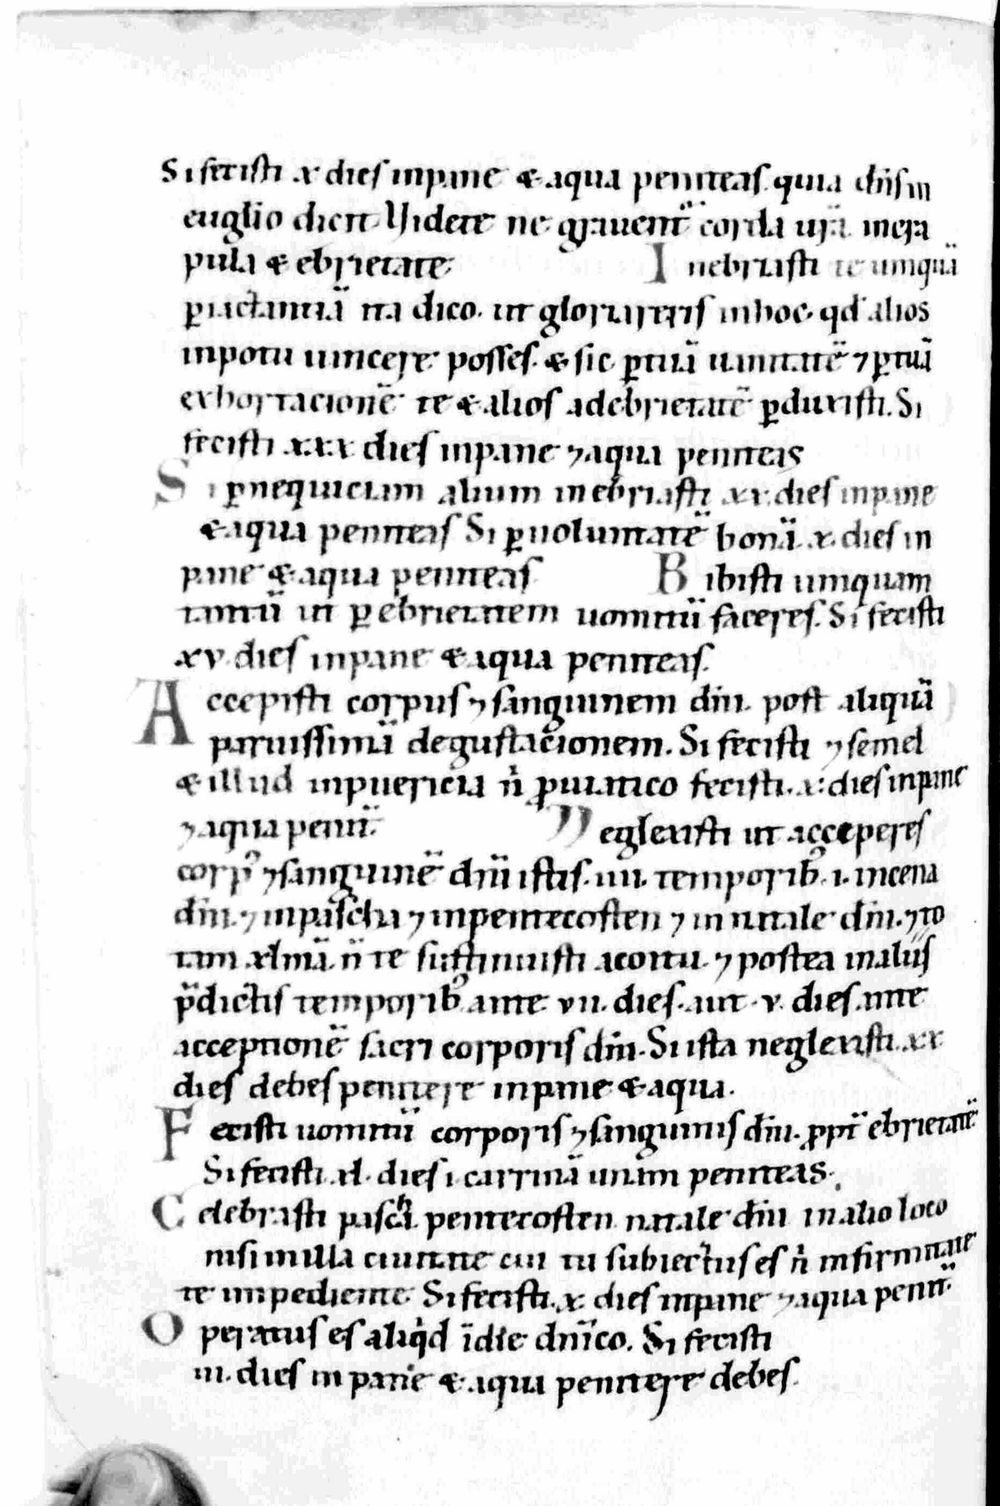 Si fecisti x dies inpane & aqua peniteas. quia dñs in
euglio dicit. Videte ne grauent̃ corda ur̃a incra
pula & ebrietate. Inebriasti te umquã
p̱ iactantiã ita dico. ut gloriareris inhoc. qd' alios
inpotu uincere posses. & sic p̱tuã uanitatẽ ⁊ p̱tuã
exhortacionẽ te & alios adebrietatẽ p̱duxisti. Si
fecisti xxx dies inpane ⁊aqua peniteas
Si p̱nequiciam alium inebriasti xx. dies inpane
& aqua peniteas Si p̱ uoluntatẽ bonã .x. dies in
pane & aqua peniteas Bibisti umquam
tantũ ut p̱ ebrietatem uomitũ faceres. Si fecisti
xv dies inpane & aqua peniteas.
Accepisti corpus ⁊ sanguinem dñi. post aliquã
paruissimã degustacionem. Si fecisti ⁊ semel
& illud inpuericia ñ p̱ uiatico fecisti. x. dies inpane
⁊aqua penit̃. Neglexisti ut acciperes
corp' ⁊sanguinẽ dñi istis. iiii. temporib; .i. incena
dñi. ⁊ inpascha ⁊ inpentecosten ⁊ in natale dñi. ⁊to
tam xlmã. ñ te sustinuisti acoitu. ⁊ postea inaliis
p̃dictis temporib; ante vii. dies. aut .v. dies. ante
acceptionẽ sacri corporis dñi. Si ista neglexisti. xx
dies debes penitere inpane & aqua.
Fecisti uomitũ corporis ⁊sanguinis dñi. p̱pt̃ ebrietatẽ.
Si fecisti. xl. dies .i. carrinã unam peniteas.
Celebrasti pasc̃a. pentecosten natale dñi inalio loco
nisi inilla ciuitate cui tu subiectus es ñ infirmitate
te impediente. Si fecisti. x. dies inpane ⁊aqua penit̃.
Operatus es aliqd ĩdie dñico. Si fecisti
iii. dies in pane & aqua penitere debes.